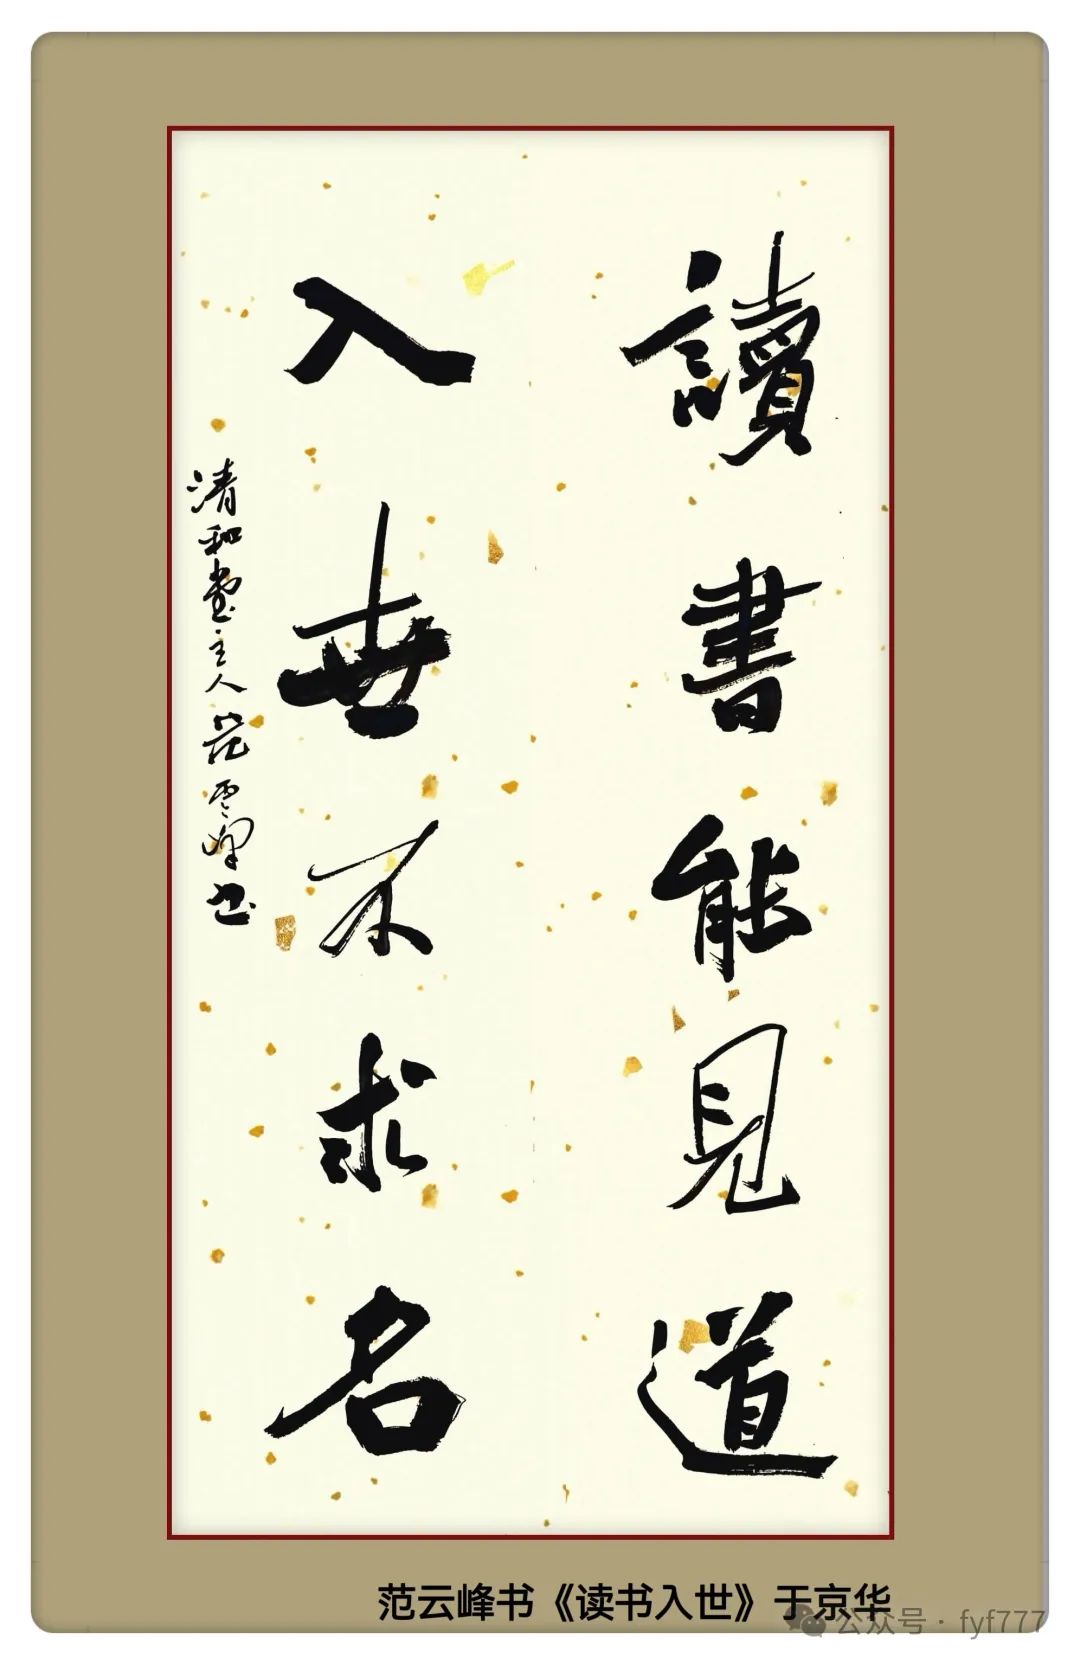 讀書能見道
入世不求名
清和堂主人范雲峰书
范云峰书《读书入世》于京华
公众号·fyf777